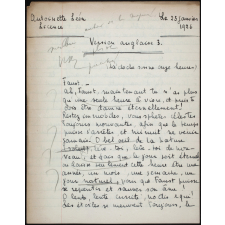 Antoinette Léon
Licence
Le 23 janvier
1926
Version anglaise 3.
La cloche sonne onze heures!
Faust.-
Ah, Faust, maintenant tu n'as plus
qu'une seule heure à vivre, et puis tu
dois être damné éternellement!
Restez immobiles, vous sphères célestes
toujours mouvantes, afin que le temps
puisse s'arrêter et minuit ne venir
jamais! O bel œil de la nature
lève-toi, lève-toi de nou-
veau, et que le jour soit éternel
ou bien cette heure être une
année, un mois, une semaine, un
jour naturel, que Faust puisse
se repentir et sauver son âme!
O lente, lente currite, noctis equi!
Les étoiles se meuvent toujours, le